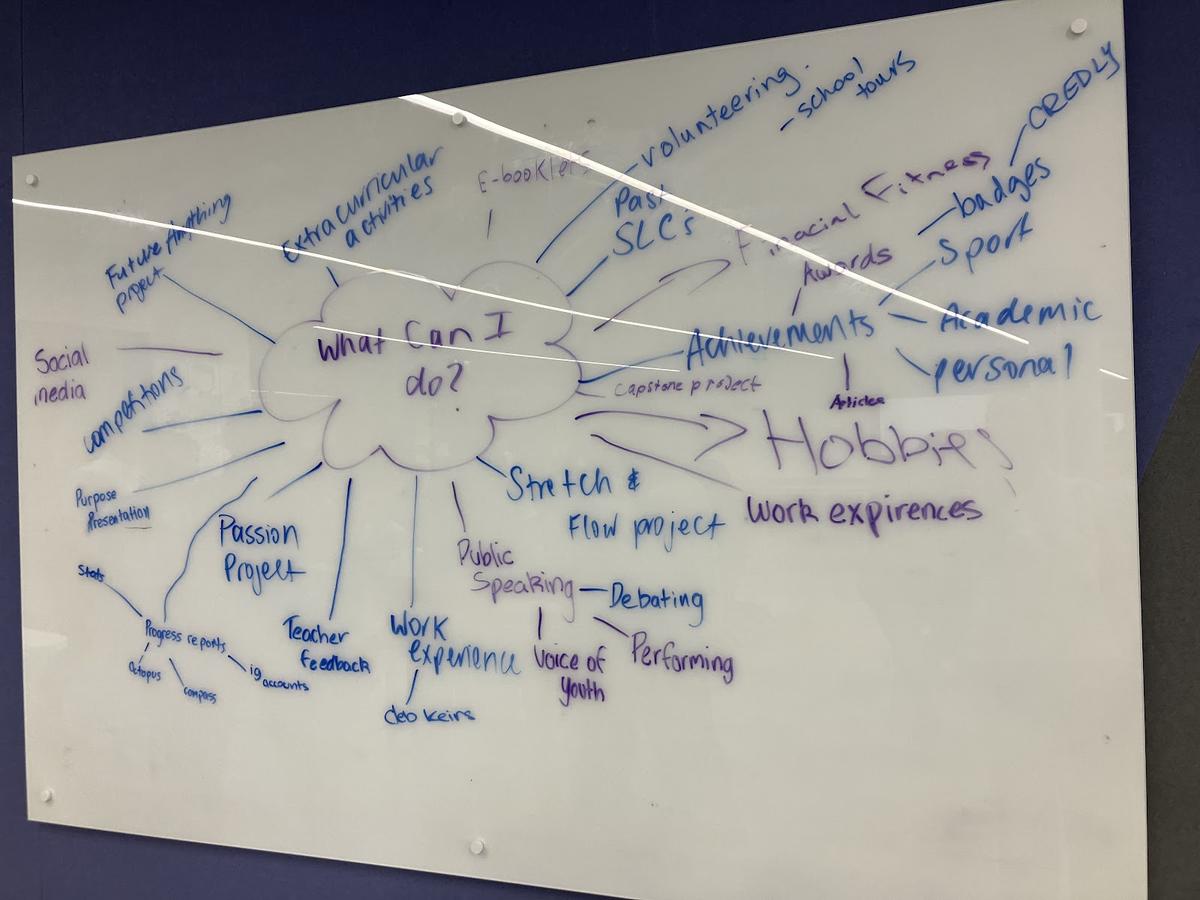 What Can I
do?
Future Anything
project
Extracurricular
activities
E-booklets
volunteering.
- school
tours
Past
SLC's
Finacial Fitness
Awards
badges
CREDLY
Sport
Achievements
Academic
personal
Articles
Capstone project
Hobbies
Work expirences
Stretch &
Flow project
Public
Speaking
Debating
Performing
Voice of
Youth
Work
experience
deb keirs
Teacher
feedback
Passion
Project
Progress reports
Stats
Octopus
compass
ig
accounts
Purpose
Presentation
competitions
Social
media